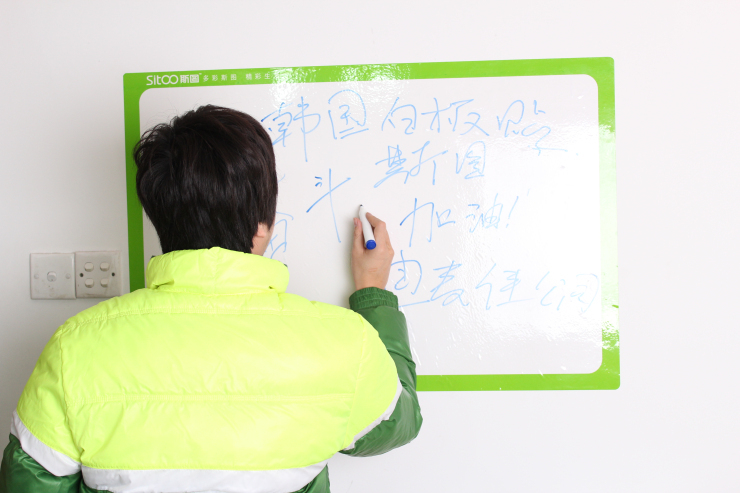 SitOO斯图 多彩斯图 精彩生
韩国白板贴
斯图
斗 加油!
麦佳公司